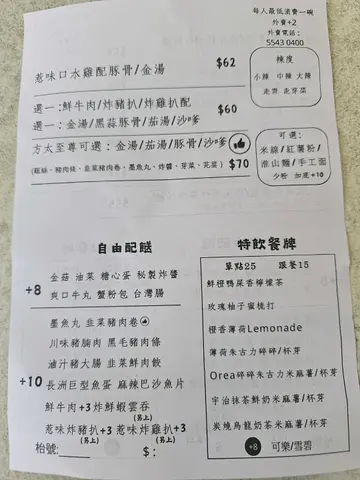 每人最低消費一碗
外賣+2
外賣電話:
5543 0400
惹味口水雞配豚骨/金湯 $62
辣度
小辣 中辣 大辣
走青 走芽菜
選一:鮮牛肉/炸豬扒/炸雞扒配
選一:金湯/黑蒜豚骨/茄湯/沙嗲 $60
方太至尊可選:金湯/茄湯/豚骨/沙嗲
(龍脷、豬肉條、韭菜豬肉卷、墨魚丸、炸醬、芽菜、花菜) $70
可選:
米線/紅薯粉/
淮山麵/手工面
少粉 加底+10
自由配餸
+8
金菇 油菜 糖心蛋 秘製炸醬
爽口牛丸 蟹粉包 台灣腸
+10
墨魚丸 韭菜豬肉卷
川味豬腩肉 黑毛豬肉條
滷汁豬大腸 韭菜鮮肉餃
長洲巨型魚蛋 麻辣巴沙魚片
鮮牛肉+3 炸鮮蝦雲吞
(另上)
惹味炸豬扒+3 惹味炸雞扒+3
(另上) (另上)
枱號:______ $:
特飲餐牌
單點25 跟餐15
鮮橙鴨屎香檸檬茶
玫瑰柚子蜜桃打
橙香薄荷Lemonade
薄荷朱古力碎碎/杯芽
Orea碎碎朱古力米麻薯/杯芽
宇治抹茶鮮奶米麻薯/杯芽
炭燒烏龍奶茶米麻薯/杯芽
+8 可樂/雪碧